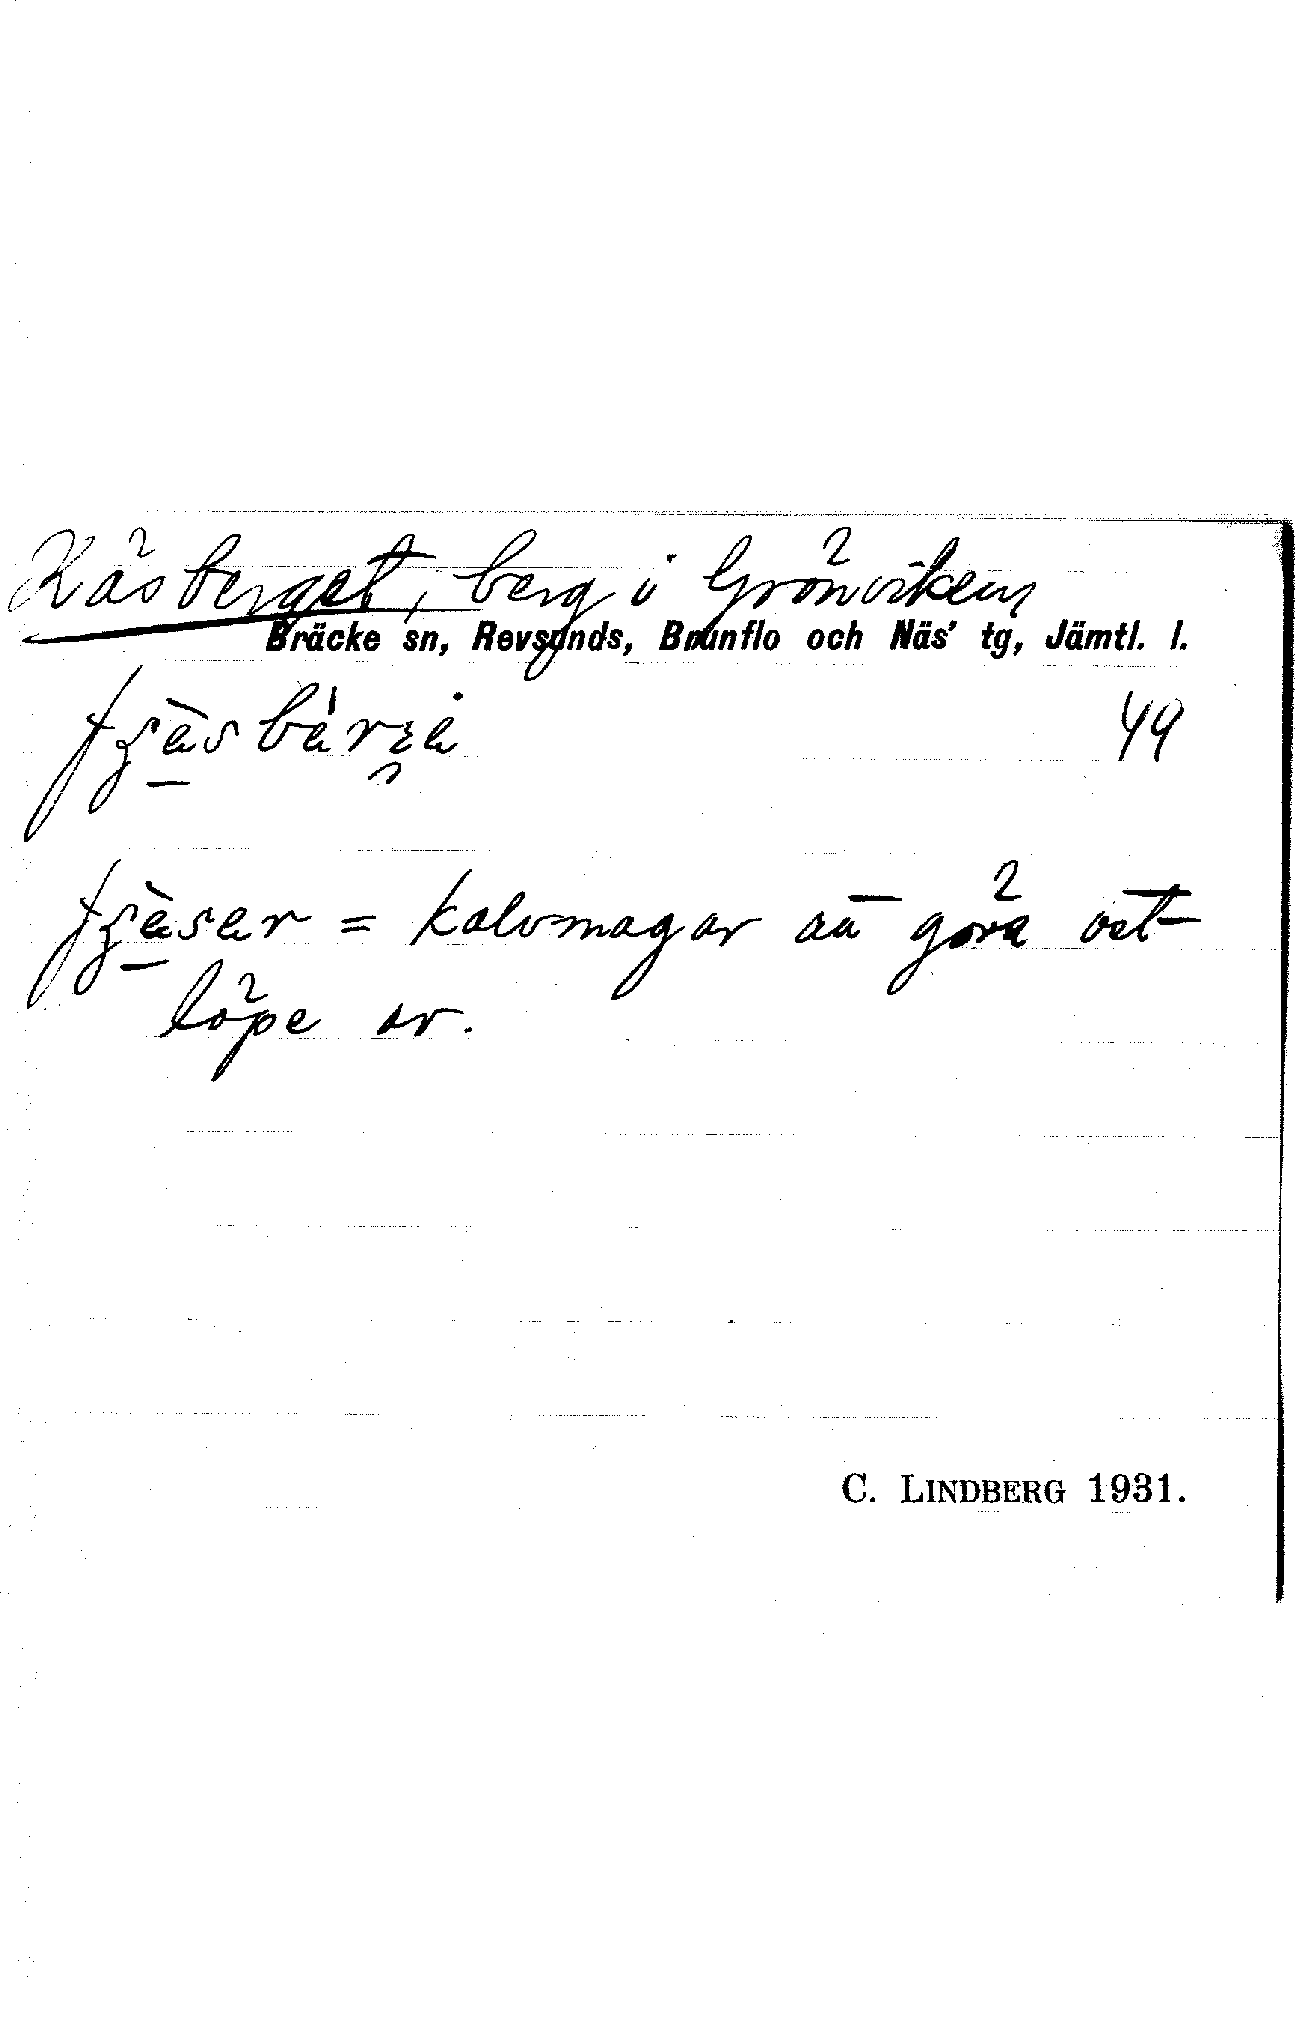 Käsberget, berg i Grönviken
Bräcke sn, Revsunds, Brunflo och Näs' tg, Jämtl. l.
49
= kalvmagar att göra ost-
löpe av.
C. LINDBERG 1931.